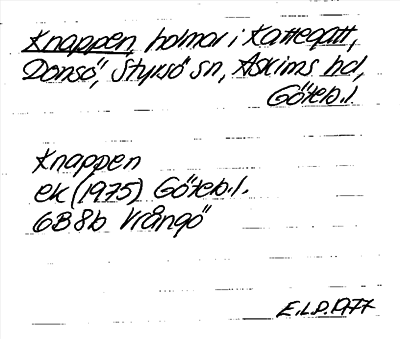 Knappen, holmar i Kattegatt,
Donsö, Styrsö sn, Askims hd,
Göteb.l.
Knappen
ek (1975) Göteb.l.
6B 8b Vrångö
E.L.D. 1977